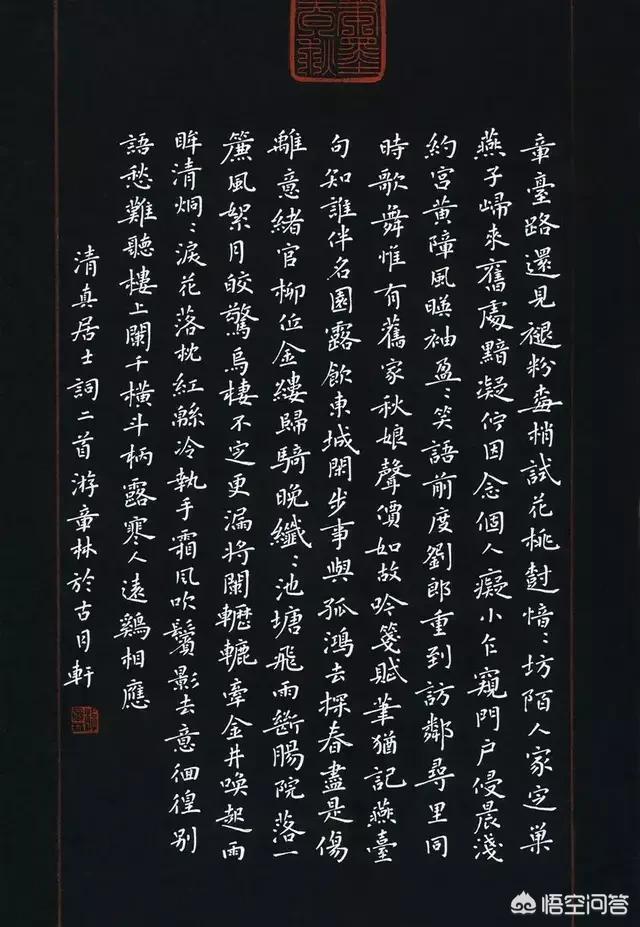 章臺路還見褪粉梅梢試花桃尌愔〻坊陌人家定巢
燕子歸來舊處黯凝佇因念個人癡小乍窺門戶侵晨淺
約宮黃障風暎袖盈〻笑語前度劉郎重到訪鄰尋里同
時歌舞惟有舊家秋娘聲價如故吟箋賦筆猶記燕臺
句知誰伴名園露飲東城閑步事與孤鴻去探春盡是傷
離意緒官柳低金縷歸騎晚纖〻池塘飛雨斷腸院落一
簾風絮月皎驚烏棲不定更漏將闌轣轆牽金井喚起兩
眸清炯〻淚花落枕紅緜冷執手霜風吹鬢影去意徊徨別
語愁難聽樓上闌干橫斗柄露寒人遠鷄相應
清真居士詞二首游章林於古月軒
悟空问答